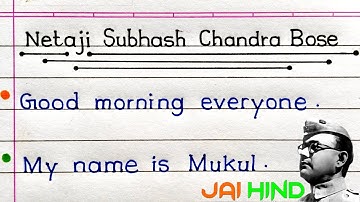 Netaji Subhash Chandra Bose
Good morning everyone.
My name is Mukul.
JAI HIND